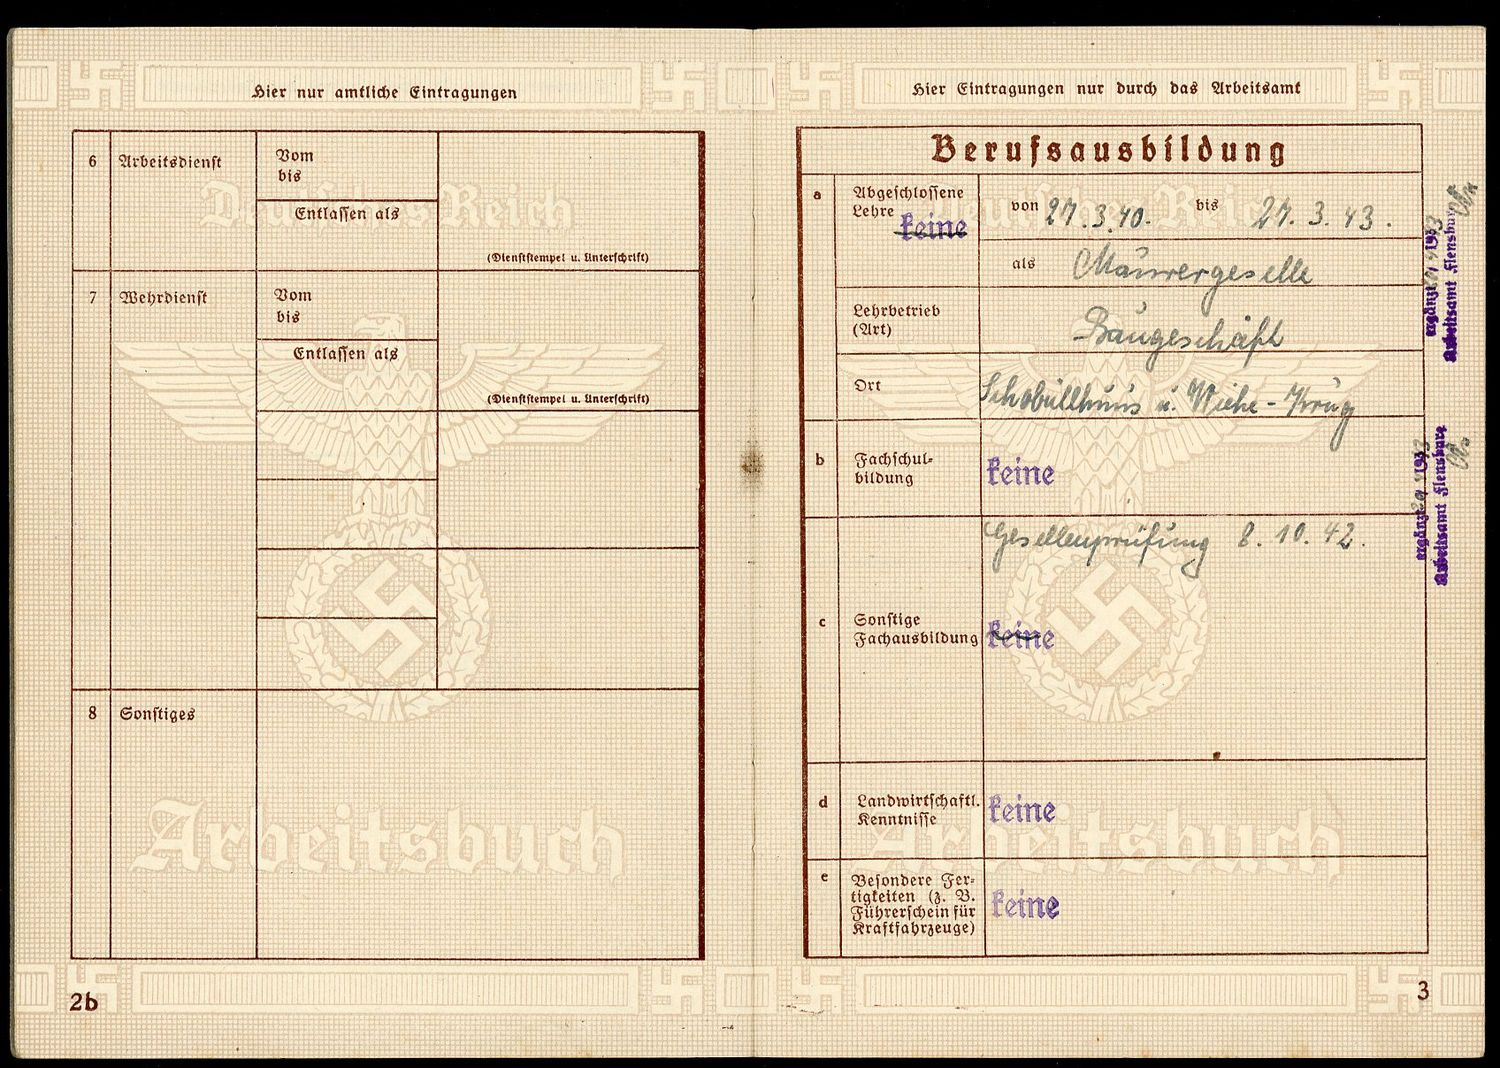 Hier nur amtliche Eintragungen
6 Arbeitsdienst
Vom
bis
Entlassen als
(Dienststempel u. Unterschrift)
7 Wehrdienst
Vom
bis
Entlassen als
(Dienststempel u. Unterschrift)
8 Sonstiges
Deutsches Reich
Arbeitsbuch
2b
Hier Eintragungen nur durch das Arbeitsamt
Berufsausbildung
a Abgeschlossene
Lehre keine
von 27.3.40. bis 27.3.43.
als Maurergeselle
Lehrbetrieb
(Art)
Baugeschäft
Ort Schobüllhuus u. Wiehe-Krug
b Fachschul-
bildung
keine
Gesellenprüfung 8.10.42.
c Sonstige
Fachausbildung keine
d Landwirtschaftl.
Kenntnisse
keine
e Besondere Fer-
tigkeiten (z. B.
Führerschein für
Kraftfahrzeuge)
keine
ergänzt
Arbeitsamt Flensburg
ergänzt
Arbeitsamt Flensburg
Deutsches Reich
Arbeitsbuch
3